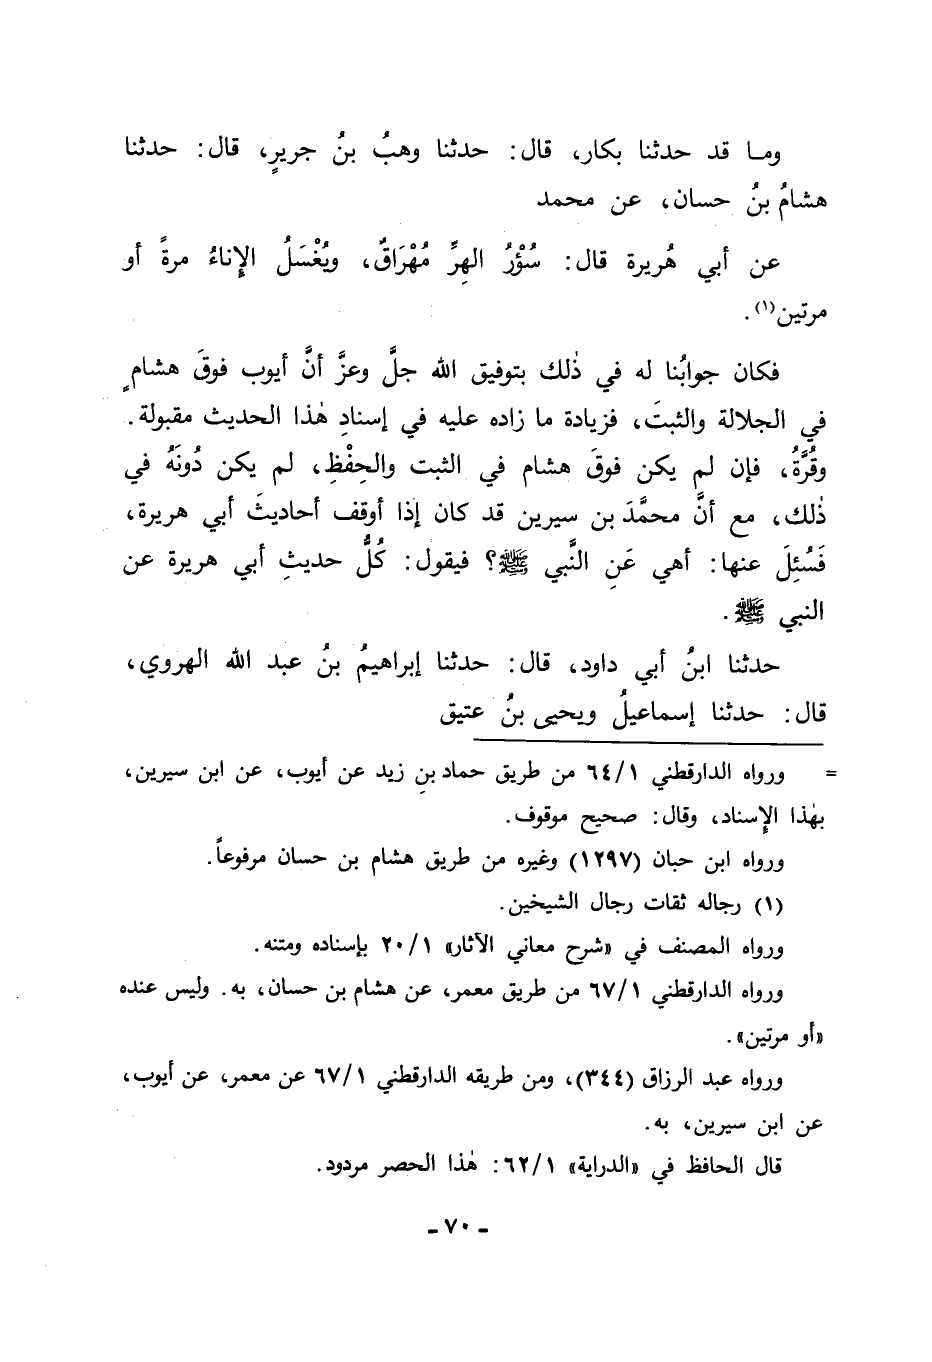 وما قد حدثنا بكار، قال: حدثنا وهبُ بنُ جريرٍ، قال: حدثنا
هشامُ بنُ حسان، عن محمد
عن أبي هُريرة قال: سُؤْرُ الهِرِّ مُهْرَاقٌ، ويُغْسَلُ الإناءُ مرةً أو
مرتين(١).
فكان جوابُنا له في ذٰلك بتوفيق الله جلَّ وعزَّ أنَّ أيوب فوقَ هشامٍ
في الجلالة والثبتَ، فزيادة ما زاده عليه في إسنادِ هٰذا الحديث مقبولة.
وقُرَّةُ، فإن لم يكن فوقَ هشام في الثبت والحِفْظِ، لم يكن دُونَهُ في
ذٰلك، مع أنَّ محمَّدَ بن سيرين قد كان إذا أوقف أحاديثَ أبي هريرة،
فَسُئِلَ عنها: أهي عَنِ النَّبي ﷺ؟ فيقول: كُلُّ حديثِ أبي هريرة عن
النبي ﷺ.
حدثنا ابنُ أبي داود، قال: حدثنا إبراهيمُ بنُ عبد الله الهروي،
قال: حدثنا إسماعيلُ ويحيى بنُ عتيق
= ورواه الدارقطني ٦٤/١ من طريق حماد بنِ زيد عن أيوب، عن ابن سيرين،
بهٰذا الإسناد، وقال: صحيح موقوف.
ورواه ابن حبان (١٢٩٧) وغيره من طريق هشام بن حسان مرفوعاً.
(١) رجاله ثقات رجال الشيخين.
ورواه المصنف في «شرح معاني الآثار» ٢٠/١ بإسناده ومتنه.
ورواه الدارقطني ٦٧/١ من طريق معمر، عن هشام بن حسان، به. وليس عنده
«أو مرتين».
ورواه عبد الرزاق (٣٤٤)، ومن طريقه الدارقطني ٦٧/١ عن معمر، عن أيوب،
عن ابن سيرين، به.
قال الحافظ في «الدراية» ٦٢/١: هٰذا الحصر مردود.
- ٧٠ -